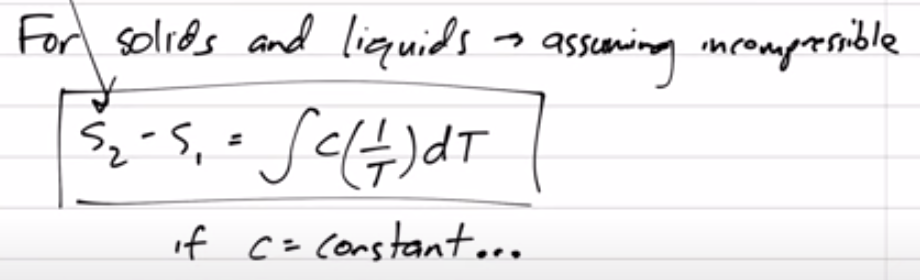 For solids and liquids → assuming incompressible
S₂ - S₁ = ∫ C(1/T) dT
if C = constant...